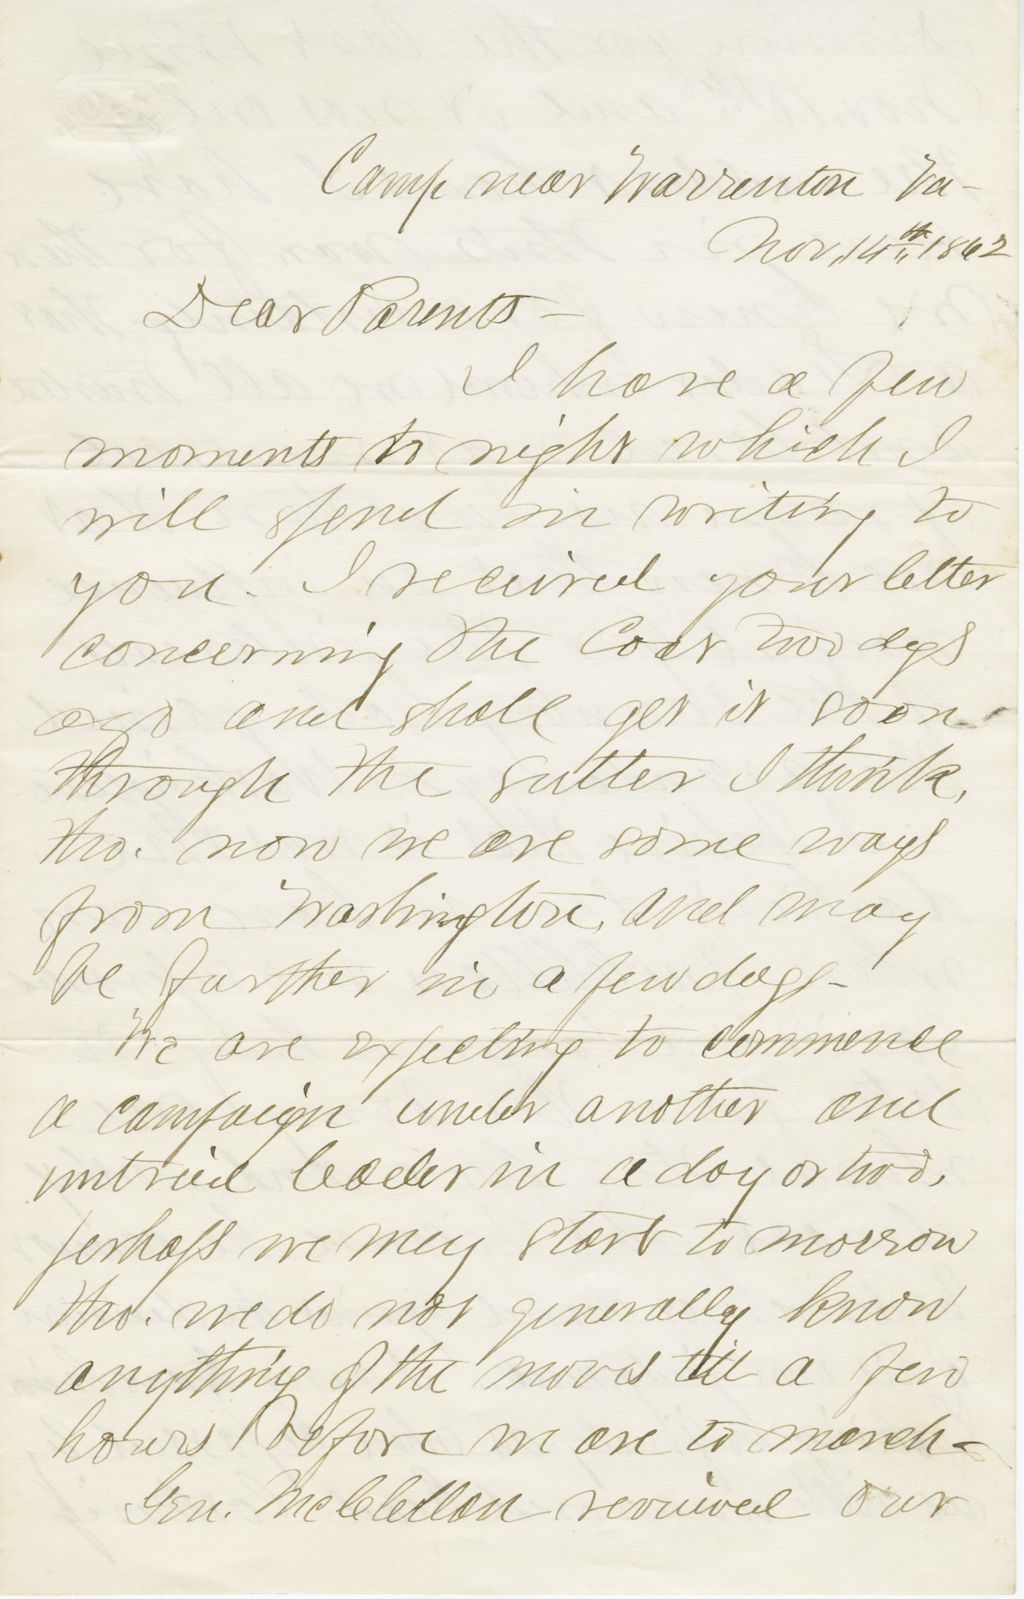 Camp near Warrenton Va-
Nov, 14th, 1862
Dear Parents -
I have a few
moments to night which I
will spend in writing to
you. I recieved your letter
concerning the Coat two days
ago and shall get it soon
through the sutler I think,
tho. now we are some ways
from Washington, and may
be further in a few days -
We are expecting to commence
a campaign under another and
untried leader in a day or two,
perhaps we may start to morrow
tho. we do not generally know
anything of the moves till a few
hours before we are to march -
Gen. McClellan reviewed our